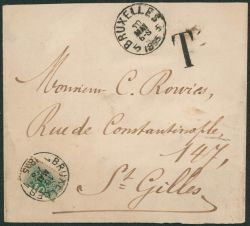 BRUXELLES 5
1895
T
Monsieur C. Rowies,
Rue de Constantinople,
147,
St Gilles
BRUXELLES